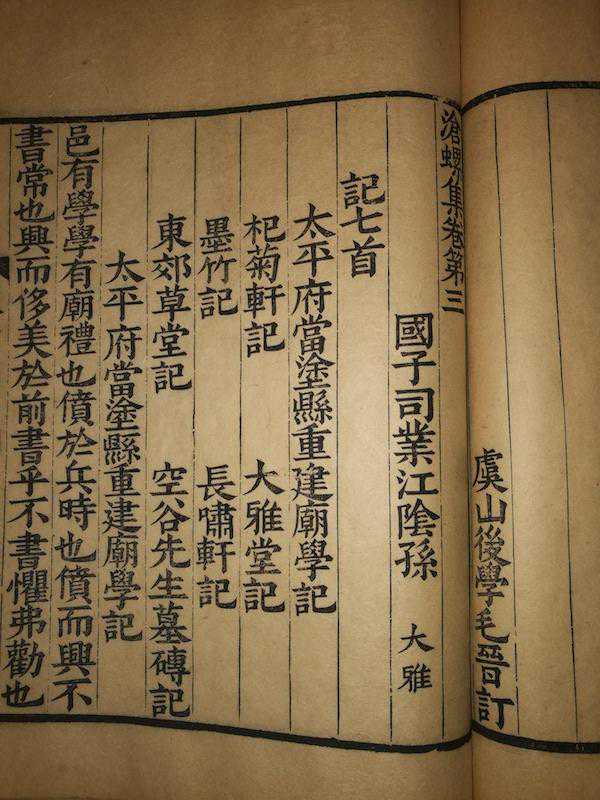 虞山後學毛晉訂
滄螺集卷第三
國子司業江陰孫 大雅
記七首
太平府當塗縣重建廟學記
杞菊軒記 大雅堂記
墨竹記 長嘯軒記
東郊草堂記 空谷先生墓磚記
太平府當塗縣重建廟學記
邑有學學有廟禮也僨於兵時也僨而興不
書常也興而侈美於前書乎不書懼弗勸也